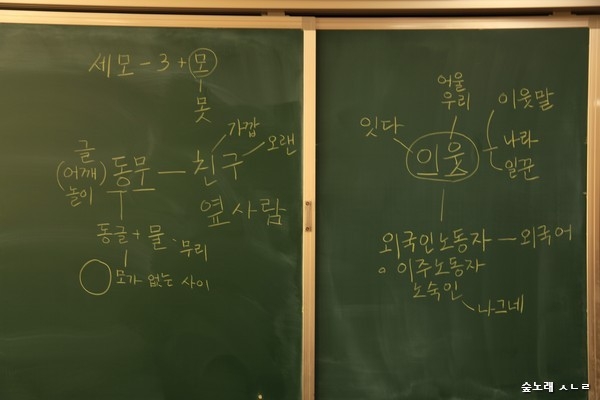 세모 - 3 + 모
못
가깝
오랜
글
(어깨)
놀이
동무 — 친구
옆사람
동글 + 물·무리
모가 없는 사이
어울
우리
잇다
이웃
이웃말
나라
일꾼
외국인노동자 — 외국어
이주노동자
노숙인
나그네
숲노래 ㅅㄴㄹ